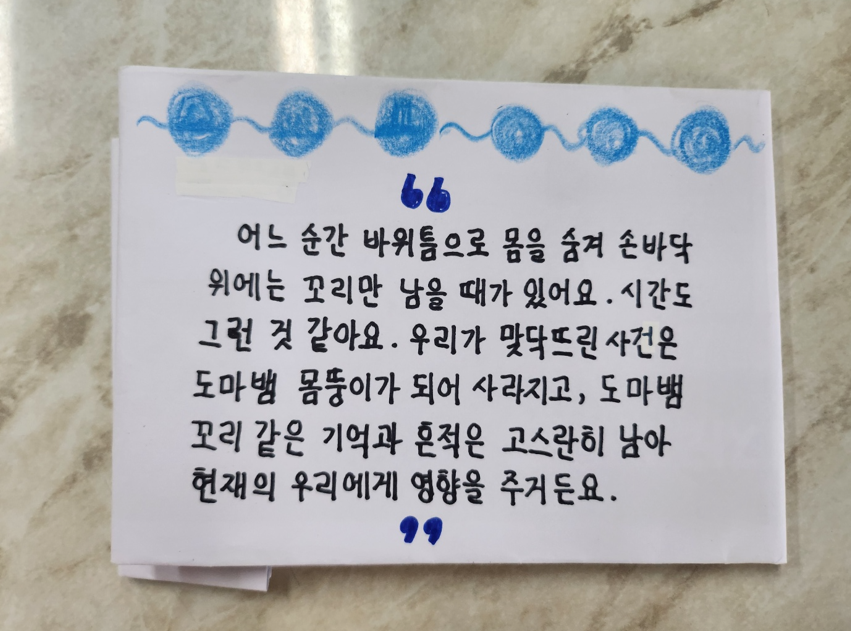 “
어느 순간 바위틈으로 몸을 숨겨 손바닥
위에는 꼬리만 남을 때가 있어요. 시간도
그런 것 같아요. 우리가 맞닥뜨린 사건은
도마뱀 몸뚱이가 되어 사라지고, 도마뱀
꼬리 같은 기억과 흔적은 고스란히 남아
현재의 우리에게 영향을 주거든요.
”